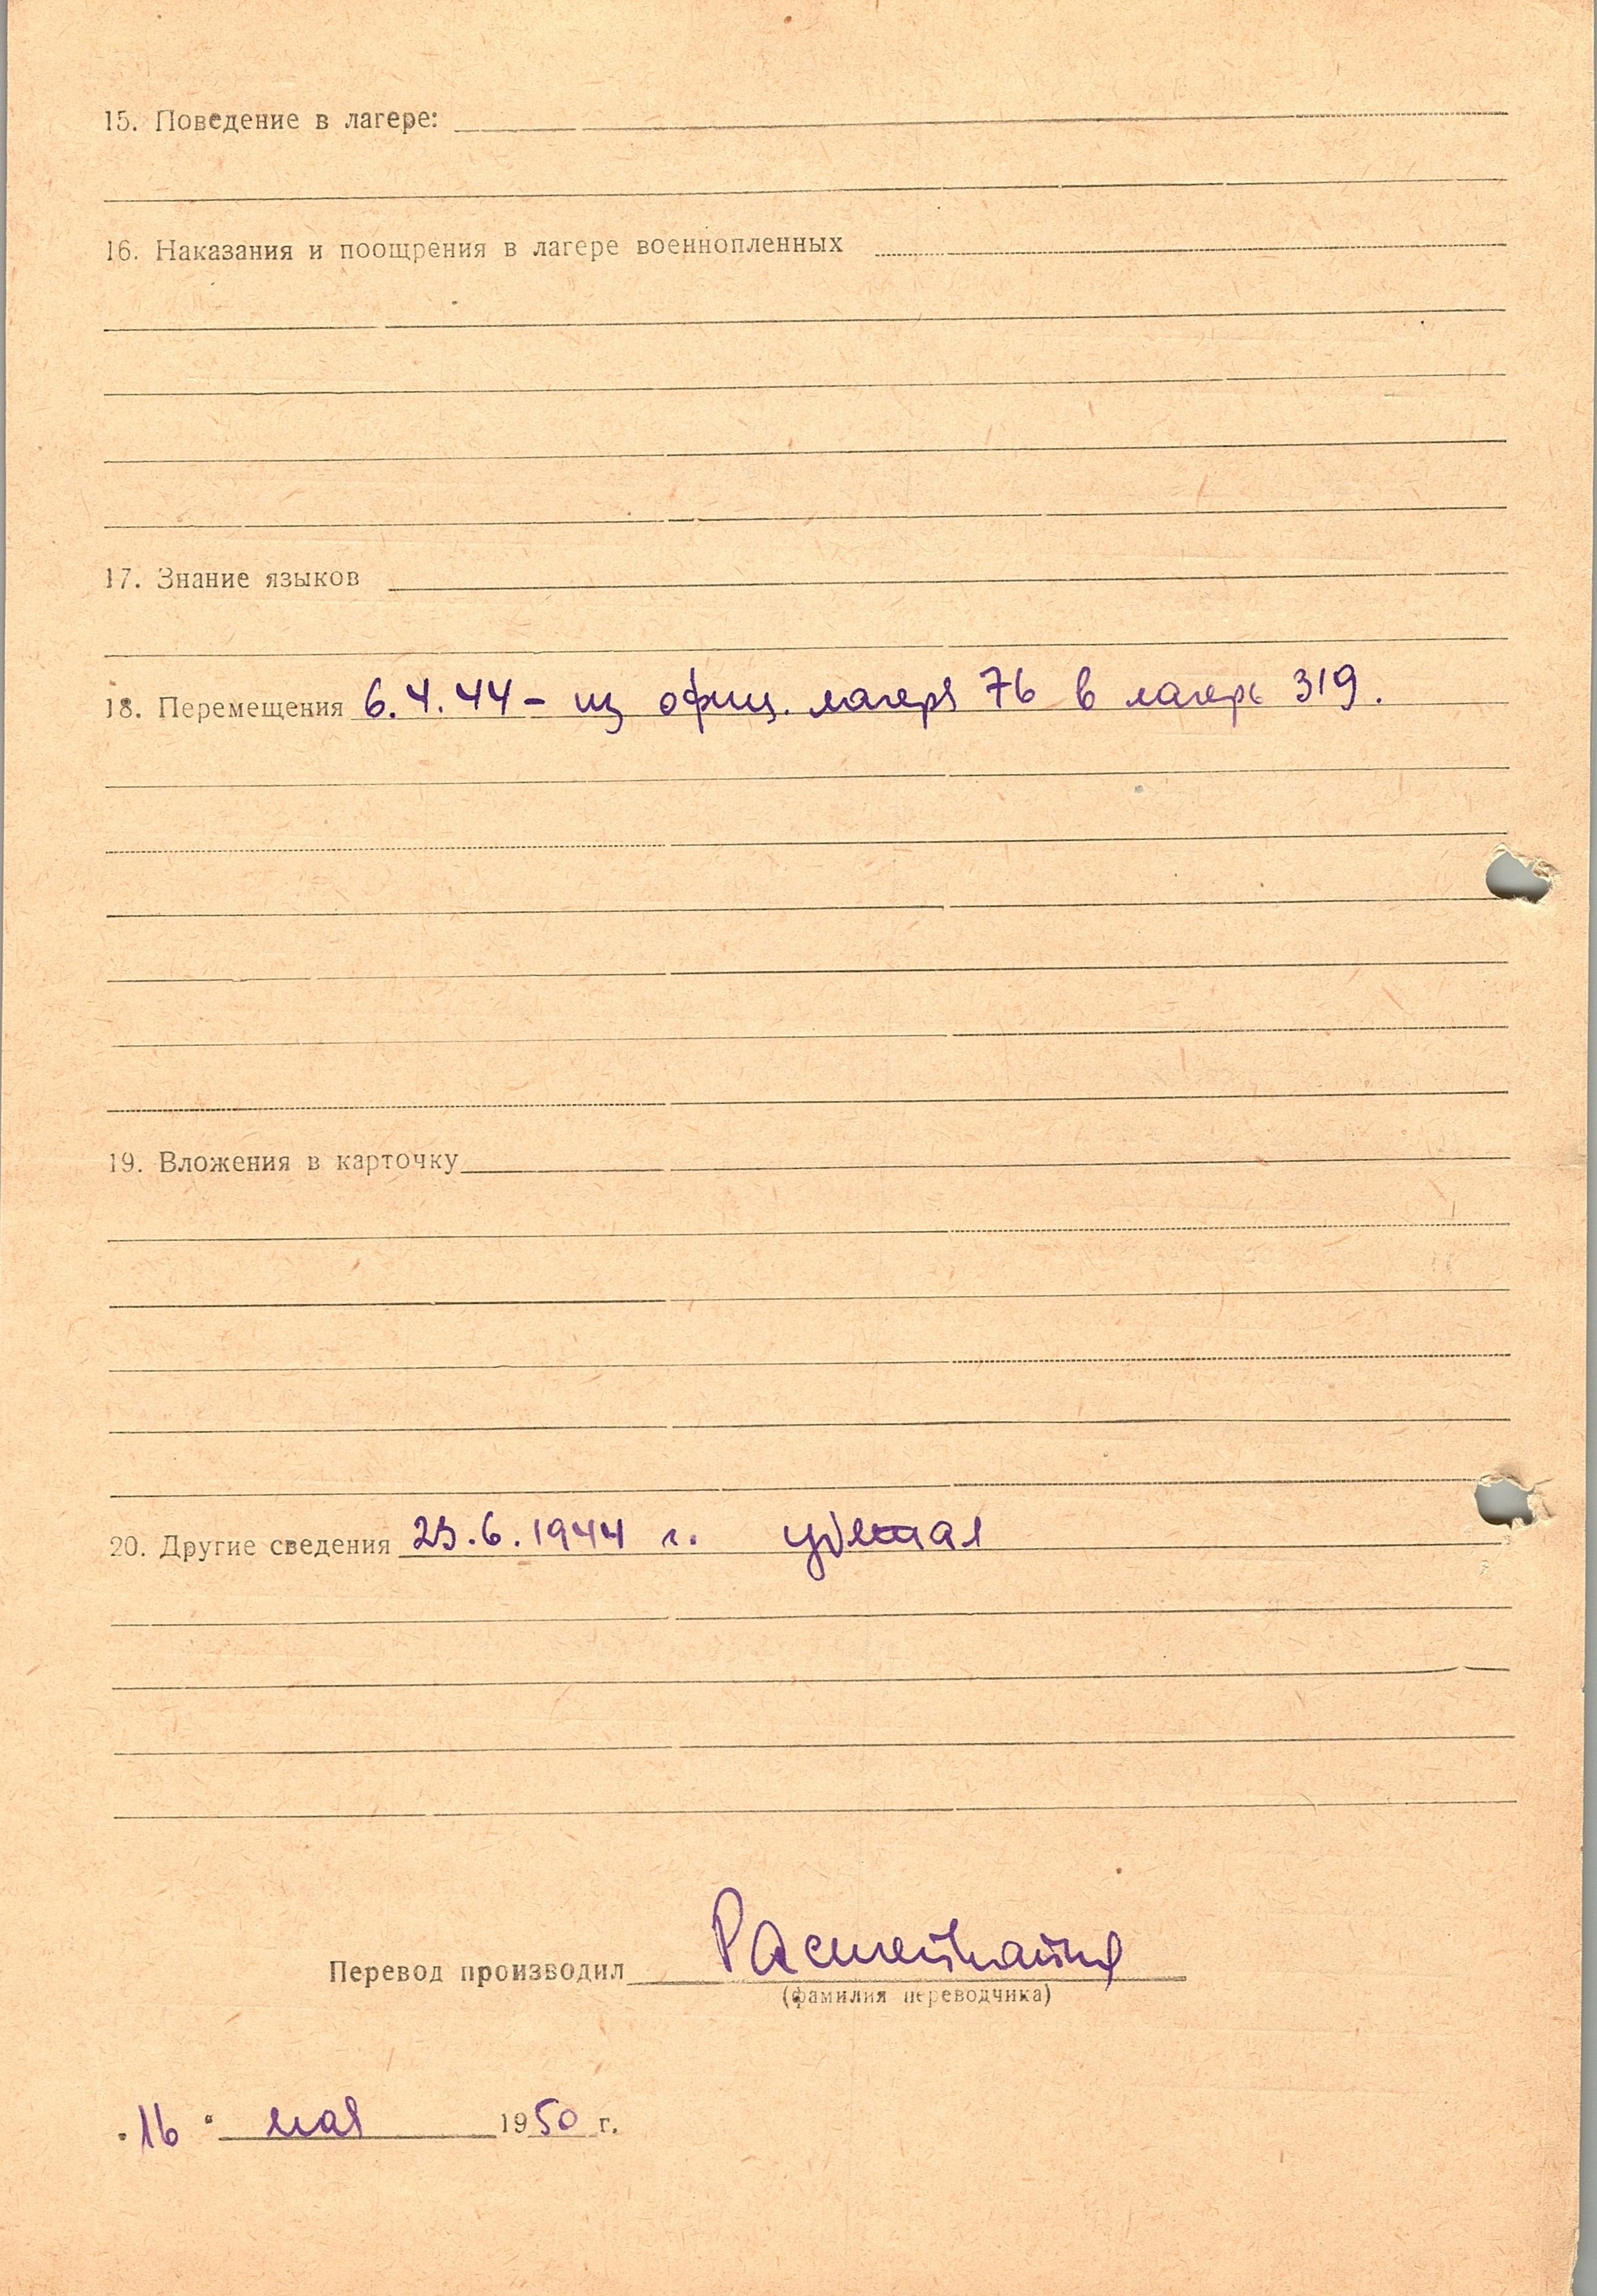 15. Поведение в лагере:
16. Наказания и поощрения в лагере военнопленных
17. Знание языков
18. Перемещения 6.4.44 – из офиц. лагеря 76 в лагерь 319.
19. Вложения в карточку
20. Другие сведения .6.1944 г. убежал
Перевод производил
(фамилия переводчика)
"16" мая 1950 г.